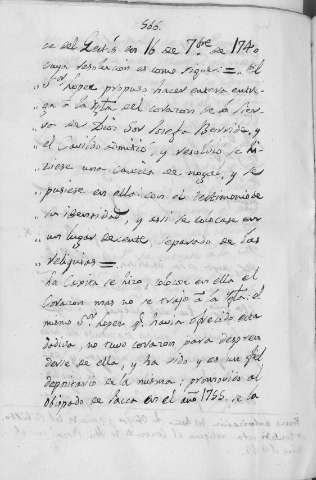 566.
ce del Leib.s en 16 de 7bre de 1740
cuya resolucion es como sigue: = El
„ S.or Lopez propuso hacer entera entre-
„ ga à la Ygta. del corazon de la Sier-
„ va de Dios Sor Josefa Berride, y
„ el Cavildo admitió, y resolvio se hi-
„ ziese una caxeta de nogal, y se
„ pusiese en ella con el testimonio de
„ su identidad, y assi se colocase en
„ un lugar decente separado de las
„ reliquias =
La Capita se hizo, coloco en ella el
Corazon mas no se trajo â la Ygta. el
mismo S.or Lopez q.e havia ofrecido esta
dadiva, no tuvo corazon para despren
derse de ella, y ha sido y es un fiel
depositario de la misma; promovido al
Obispado de Jacca en el año 1755. de la